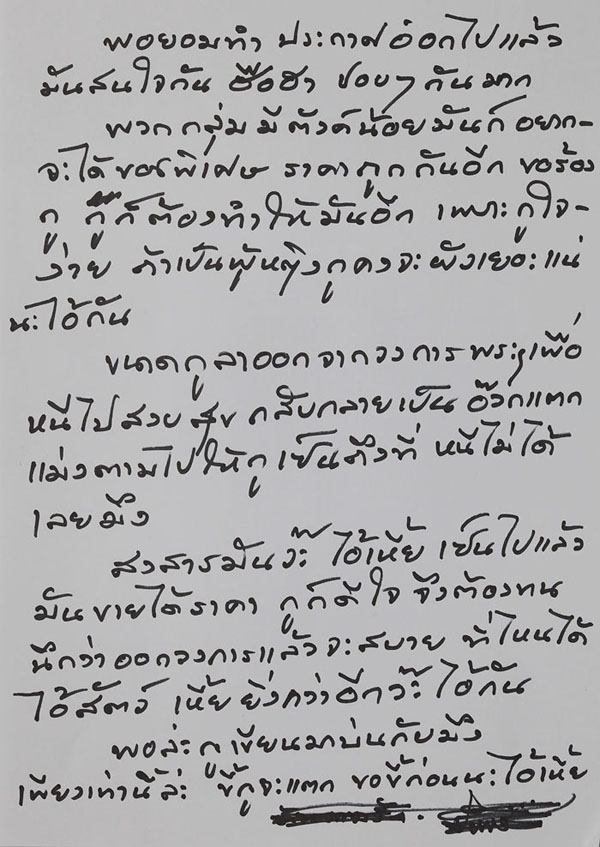 พอยอมทำ ประกาศออกไปแล้ว
มันสนใจกัน ฮือฮา ชอบๆ กันมาก
พวกกลุ่ม มีตังค์น้อยมันก็อยาก-
จะได้ของพิเศษ ราคาถูกกันอีก ขอร้อง
กู กูก็ต้องทำให้มันอีก เพราะกูใจ-
ง่าย ถ้าเป็นผู้หญิงกูคงจะผัวเยอะแน่
นะไอ้กัน
ขนาดกูลาออกจากวงการพระๆเพื่อ
หนีไปสงบสุข กลับกลายเป็น อ๊วกแตก
แม่งตามไปให้กูเย็นถึงที่ หนีไม่ได้
เลยมึง
สงสารมันว่ะ ไอ้เหี้ย เย็นไปแล้ว
มันขายได้ราคา กูก็ดีใจ จึงต้องทน
นึกว่าออกวงการแล้วจะสบาย ที่ไหนได้
ไอ้สัตว์ เหี้ยยิ่งกว่าอีกว๊ะ ไอ้กัน
พอล่ะ กูเขียนมาบ่นกับมึง
เพียงเท่านี้ล่ะ ขี้กูจะแตก ขอขี้ก่อนนะไอ้เหี้ย